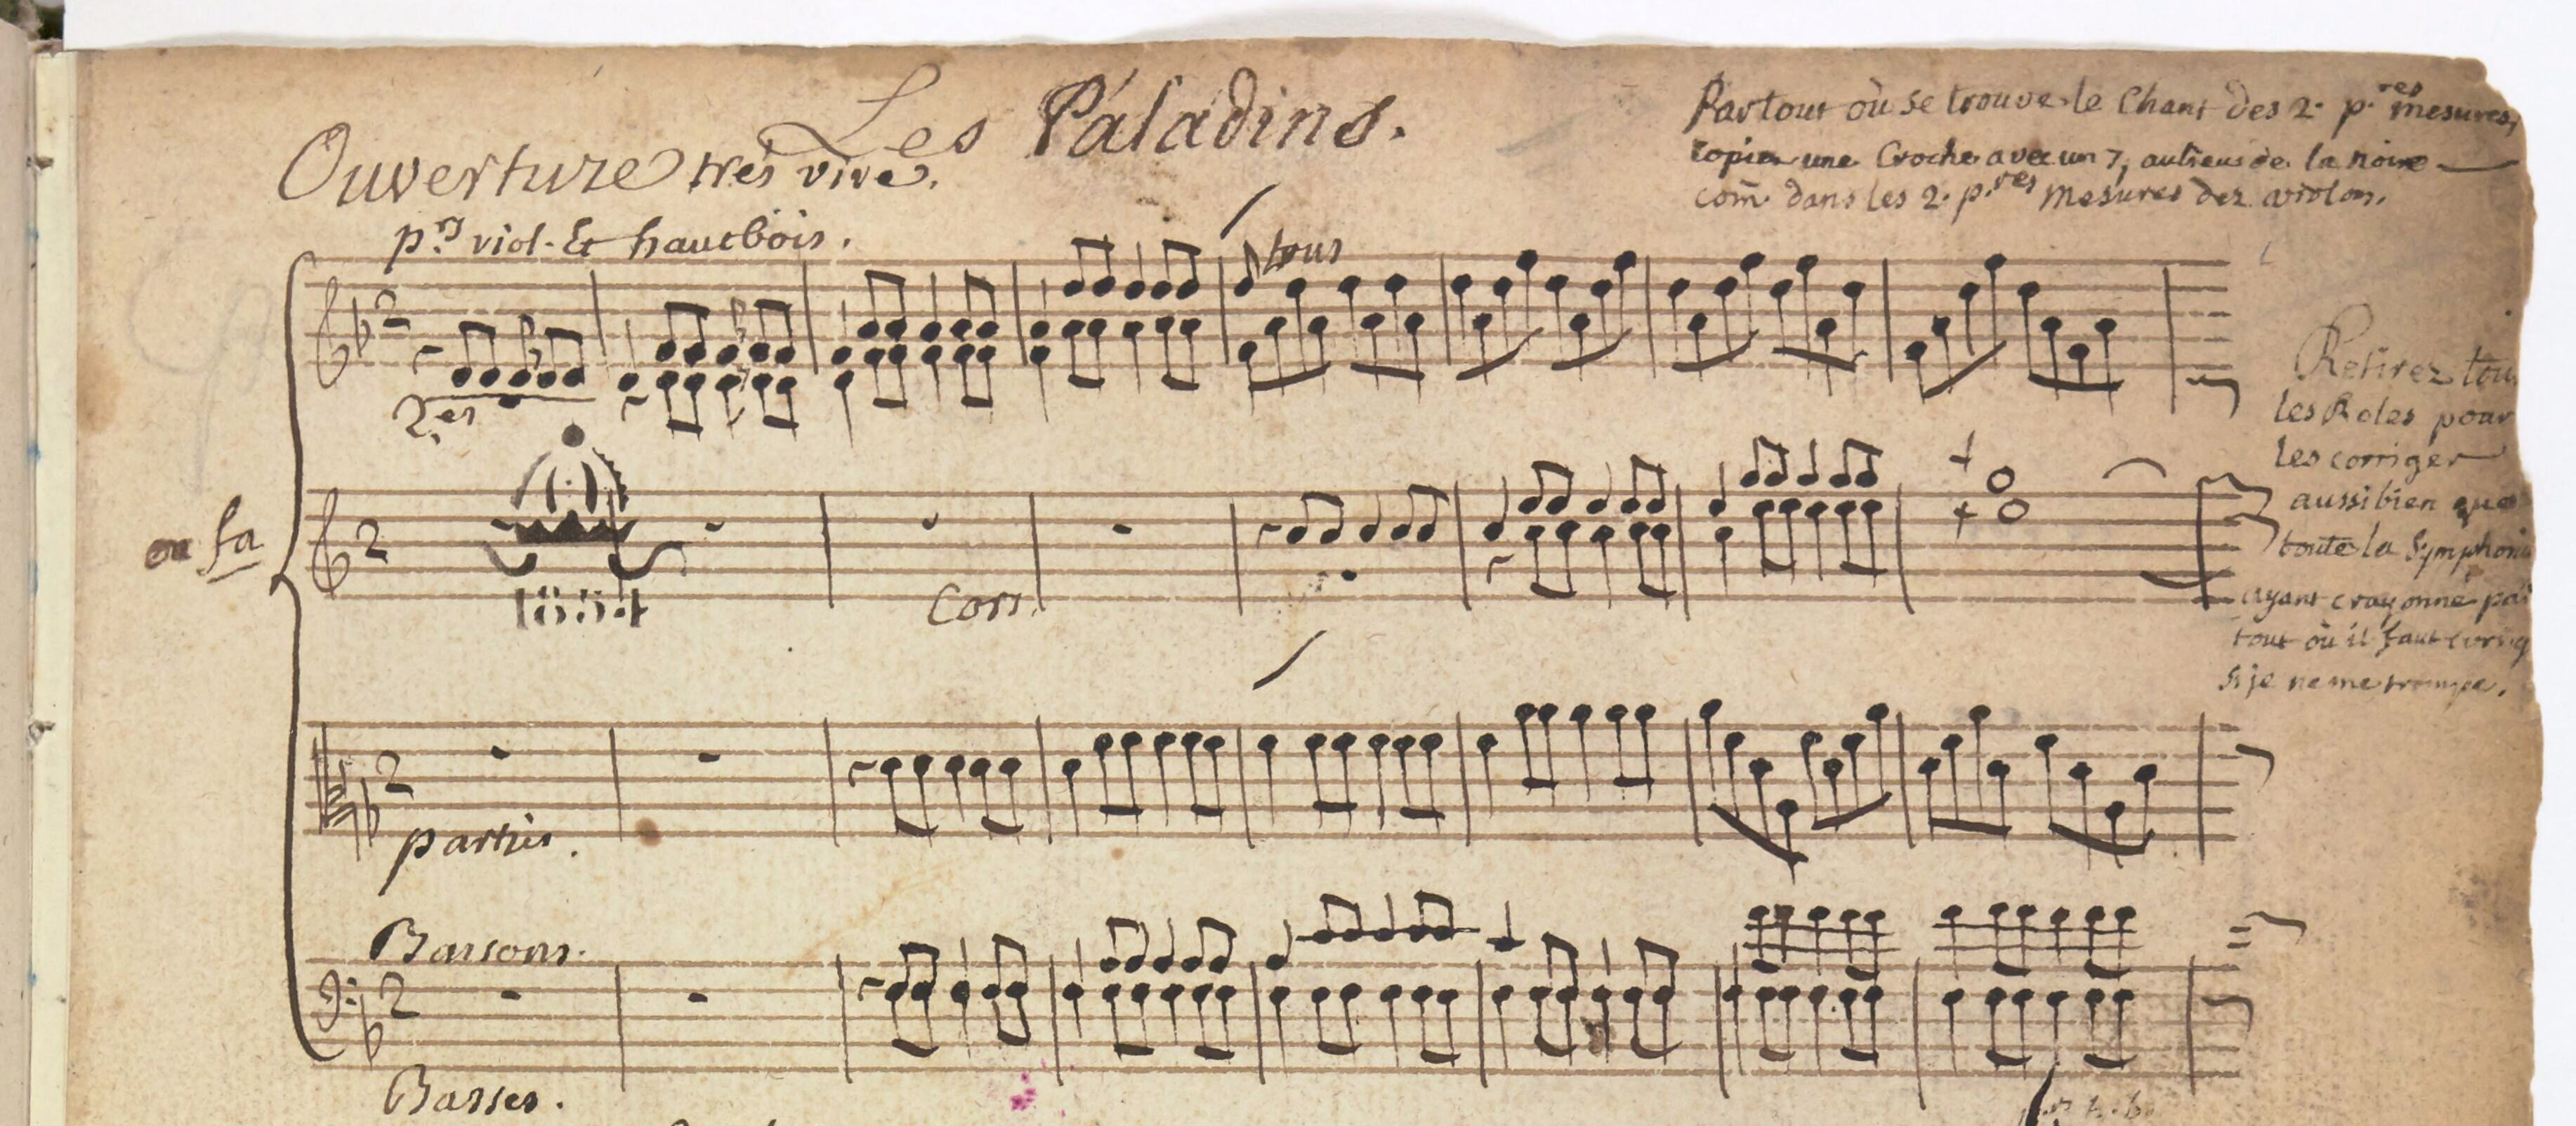 Les Paladins.
Ouverture très vive.
p.rs viol. & hautbois.
Partout où se trouve le Chant des 2. p.res mesures,
copier une Croche avec un 7, au lieu de la noire
com̄ dans les 2. p.res mesures des violon.
tous
2.es
Retirez tou
les Roles pour
les corriger
aussi bien que
toute la Symphonie
ayant crayonné pa
tout où il faut corrig
si je ne me trompe.
en fa
1884
Cors.
parties.
Bassons.
Basses.